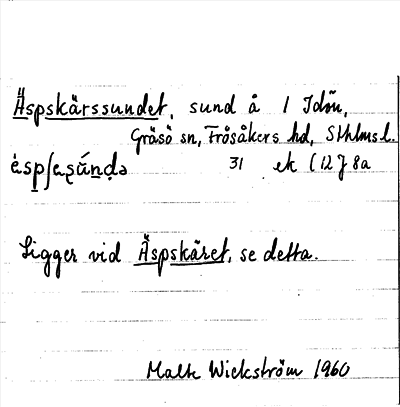 Äspskärssundet, sund å 1 Idön,
Gräsö sn, Frösåkers hd, Sthlms l.
èspʃaʂúṇḍə 31 ek (12J 8a
Ligger vid Äspskäret, se detta.
Malte Wickström 1960